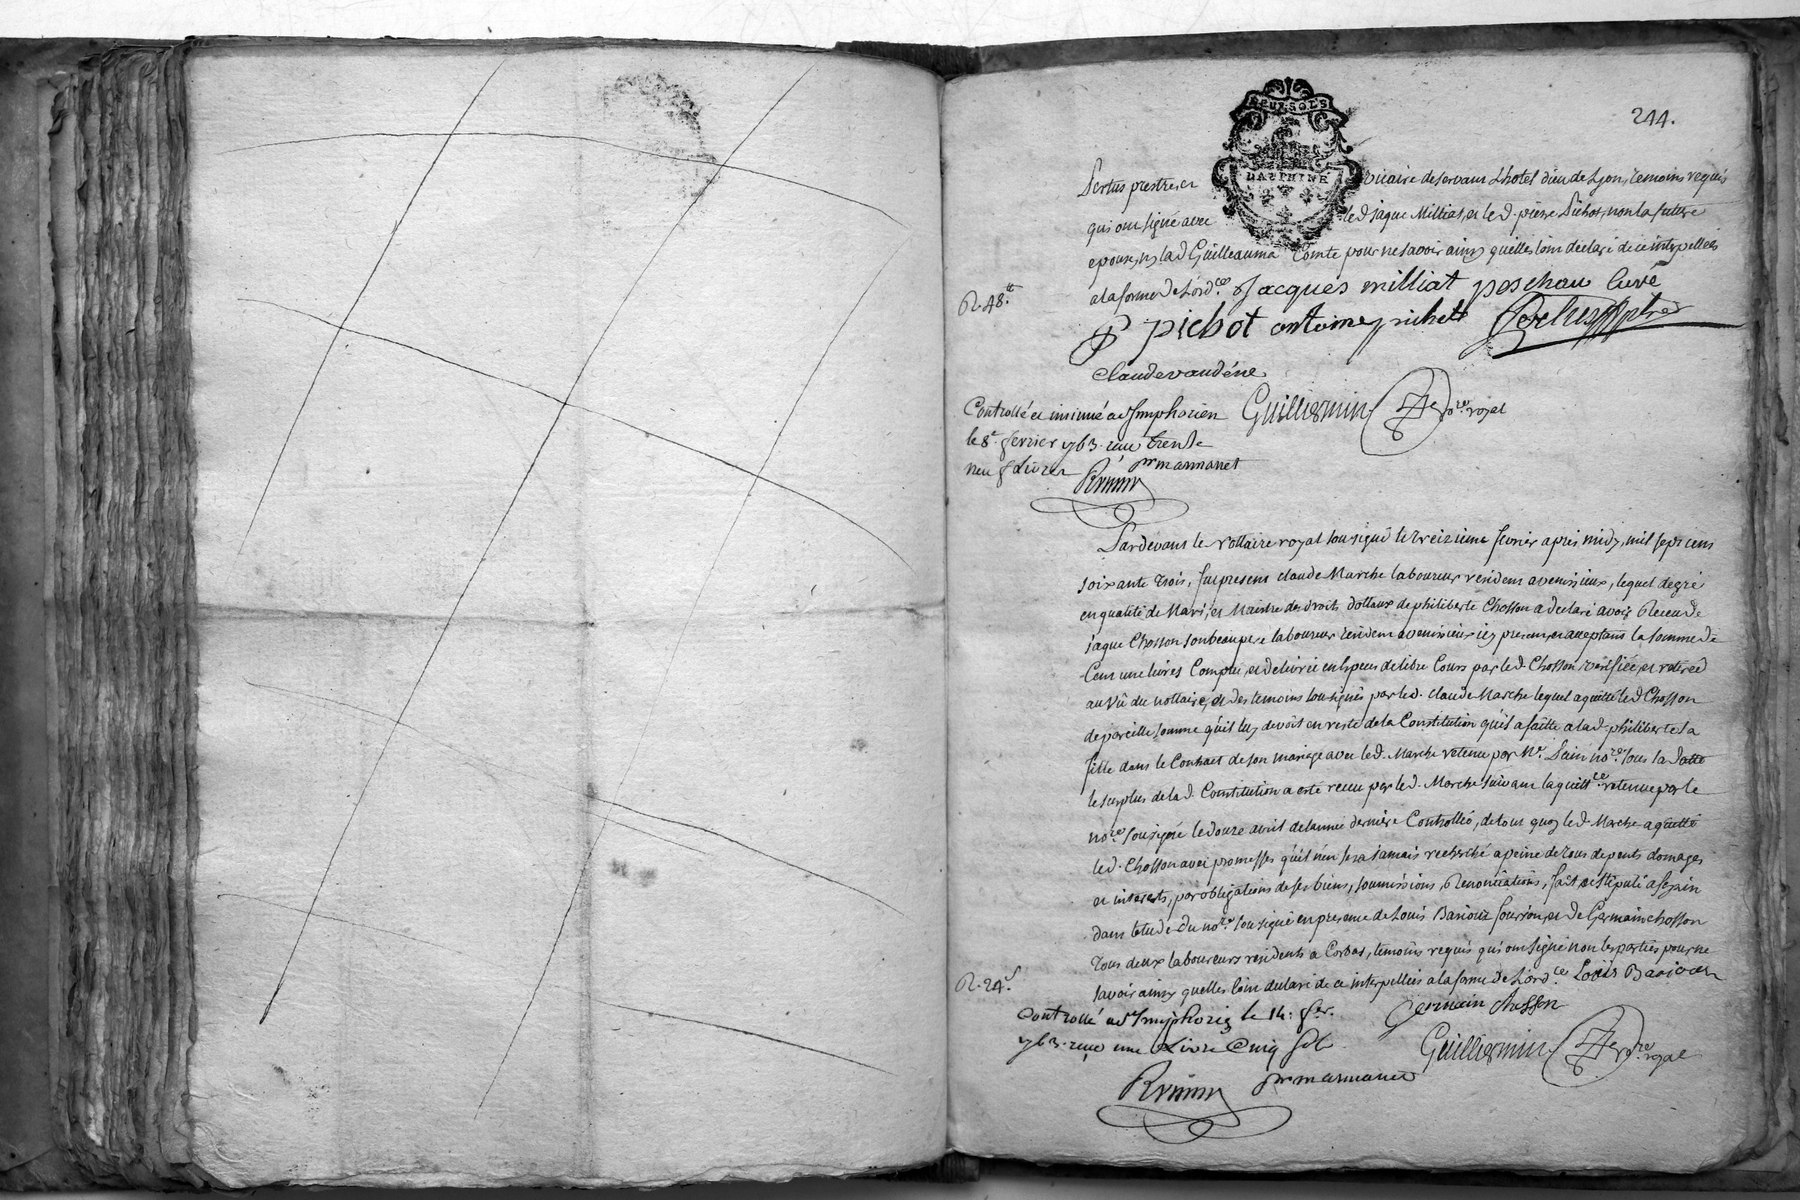 244.
DEUX SOLS
DAUPHINE
prestre et vicaire deservant L'hotel dieu de Lyon, temoins requis
qui ont signé avec led jaque Milliat, et le d. pierre Pichot, non la future
epouse, ny lad Guilleauma Comte pour ne savoir ainsy quelles l'ont declaré de ce interpellées
a la forme de L'ord.ce Jacques milliat peschau curé
R. 48.tt
P pichot antoine pichot
claude vaudéne
Controllé et insinué a st Simphorien Guilliermin no.re royal
le 8e. fevrier 1763. reçu trente
neuf Livres pr marmanet
Pardevant le Nottaire royal sousigné le treizieme fevrier apres midy, mil sept cens
soixante trois, fut present claude Marche laboureur resident a venissieux, lequel de gré
en qualité de Mari, et Maistre des droits dottaux de philiberte Chosson a declaré avoir Receu de
jaque Chosson son beaupere laboureur resident a venissieux icy present et acceptant la somme de
Cent une livres Comptée et delivrée en Especes de libre Cours par le d. Chosson verifiée, et retirée
au Vû du nottaire, et des temoins sousignés par le d. claude Marche lequel a quitté le d Chosson
de pareille somme qu'il luy devoit en reste de la Constitution qu'il a faitte a la d. philiberte sa
fille dans le Contract de son mariage avec le d. Marche retenue par Me. Sain no.re sous sa datte
le surplus de la d. Constitution a esté receu par le d. Marche suivant la quitt.ce retenue par le
no.re sousigné le douze avril de l'année derniere Controllée, de tout quoy le d. Marche a quitté
le d. Chosson avec promesses qu'il n'en sera jamais recherché a peine de tous depents domages
et interests, par obligations de ses biens, soumissions, Renonciations, fait et stipulé a feyzin
dans letude du no.re sousigné en presence de Louis Barioz et de Germain chosson
tous deux laboureurs residents a Corbas, temoins requis qui ont signé non les parties pour ne
savoir ainsy quelles l'ont declaré de ce interpellées a la forme de L'ord.ce Loüis Barioz
R. 24.s
Germain chosson
Controllé a st Simphorien le 14. fer.
1763. reçu une Livre Cinq sols Guilliermin no.re royal
pr marmanet